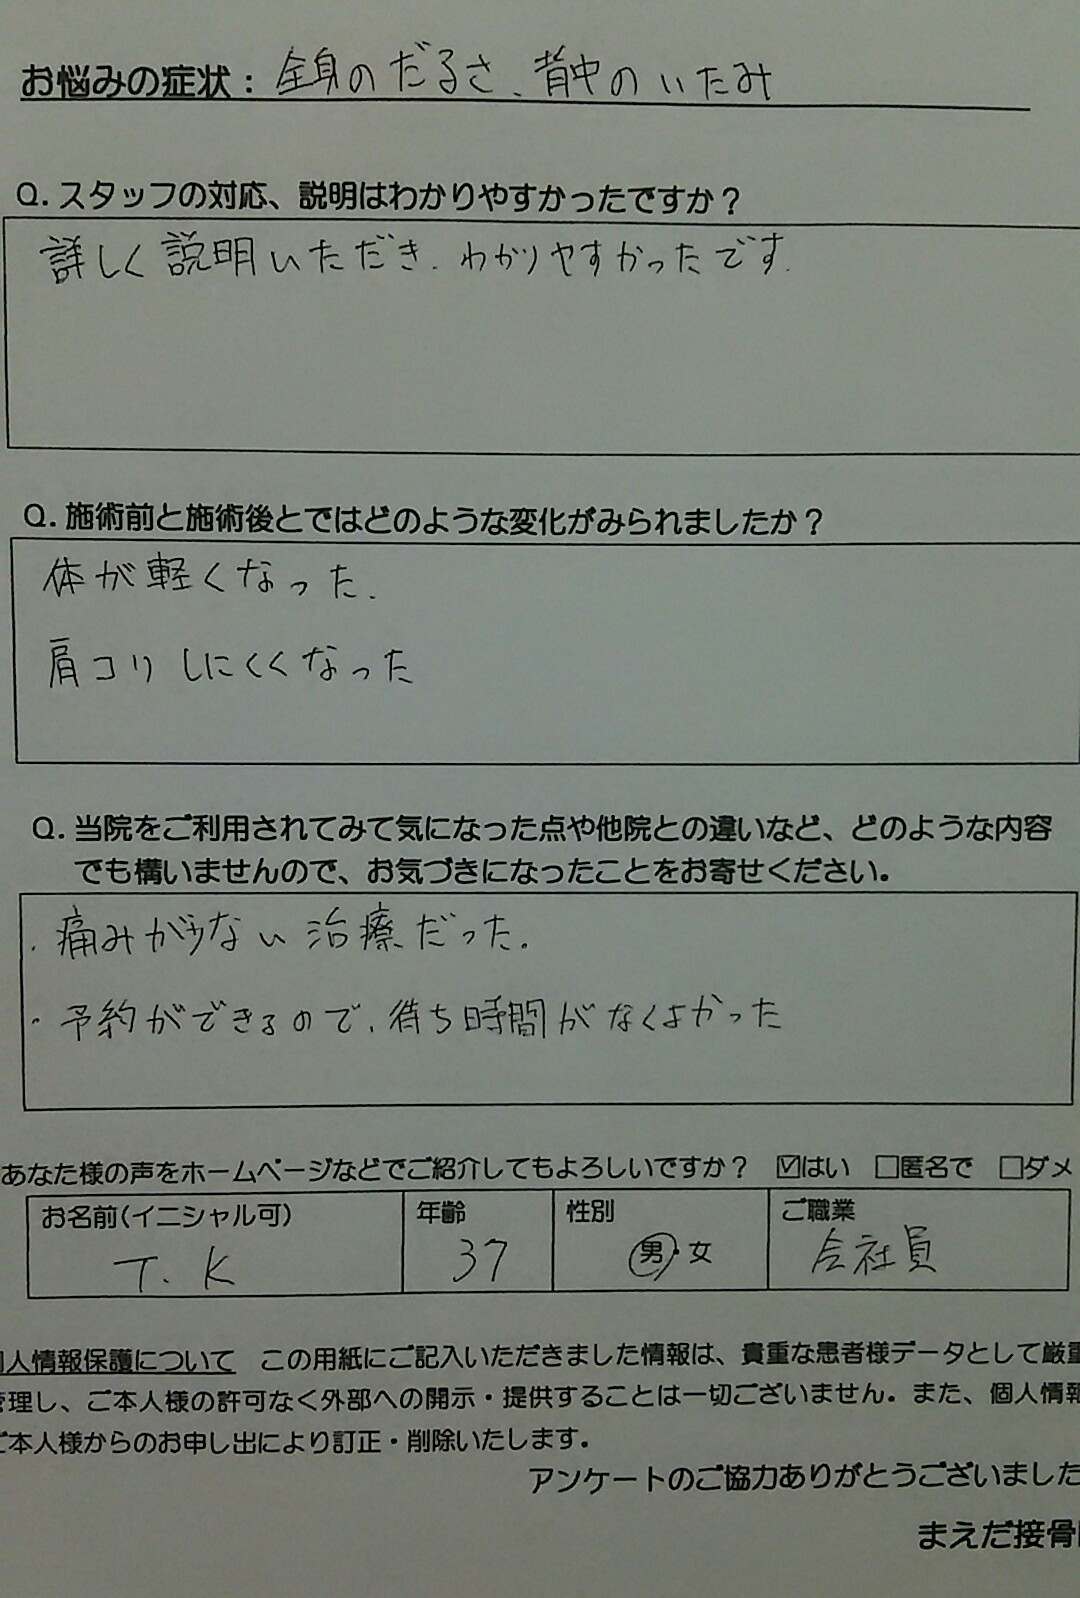 お悩みの症状：全身のだるさ、背中のいたみ
Q. スタッフの対応、説明はわかりやすかったですか？
詳しく説明いただき、わかりやすかったです。
Q. 施術前と施術後とではどのような変化がみられましたか？
体が軽くなった。
肩コリしにくくなった
Q. 当院をご利用されてみて気になった点や他院との違いなど、どのような内容
でも構いませんので、お気づきになったことをお寄せください。
・痛みが少ない治療だった。
・予約ができるので、待ち時間がなくよかった
あなた様の声をホームページなどでご紹介してもよろしいですか？ ☑はい □匿名で □ダメ
お名前(イニシャル可) 年齢 性別 ご職業
T. K 37 男・女 会社員
人情報保護について この用紙にご記入いただきました情報は、貴重な患者様データとして厳重
管理し、ご本人様の許可なく外部への開示・提供することは一切ございません。また、個人情報
ご本人様からのお申し出により訂正・削除いたします。
アンケートのご協力ありがとうございました
まえだ接骨